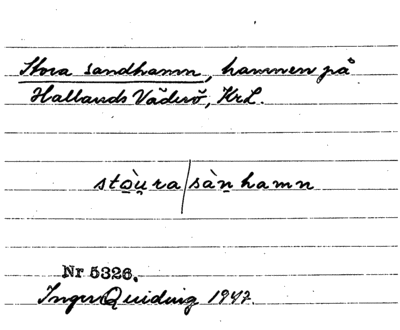 Stora sandhamn, hamnen på
Hallands Väderö, Kr.L.
stò̱u̱ra/sàṉhamn
Nr 5326.
Inger Quiding 1947.